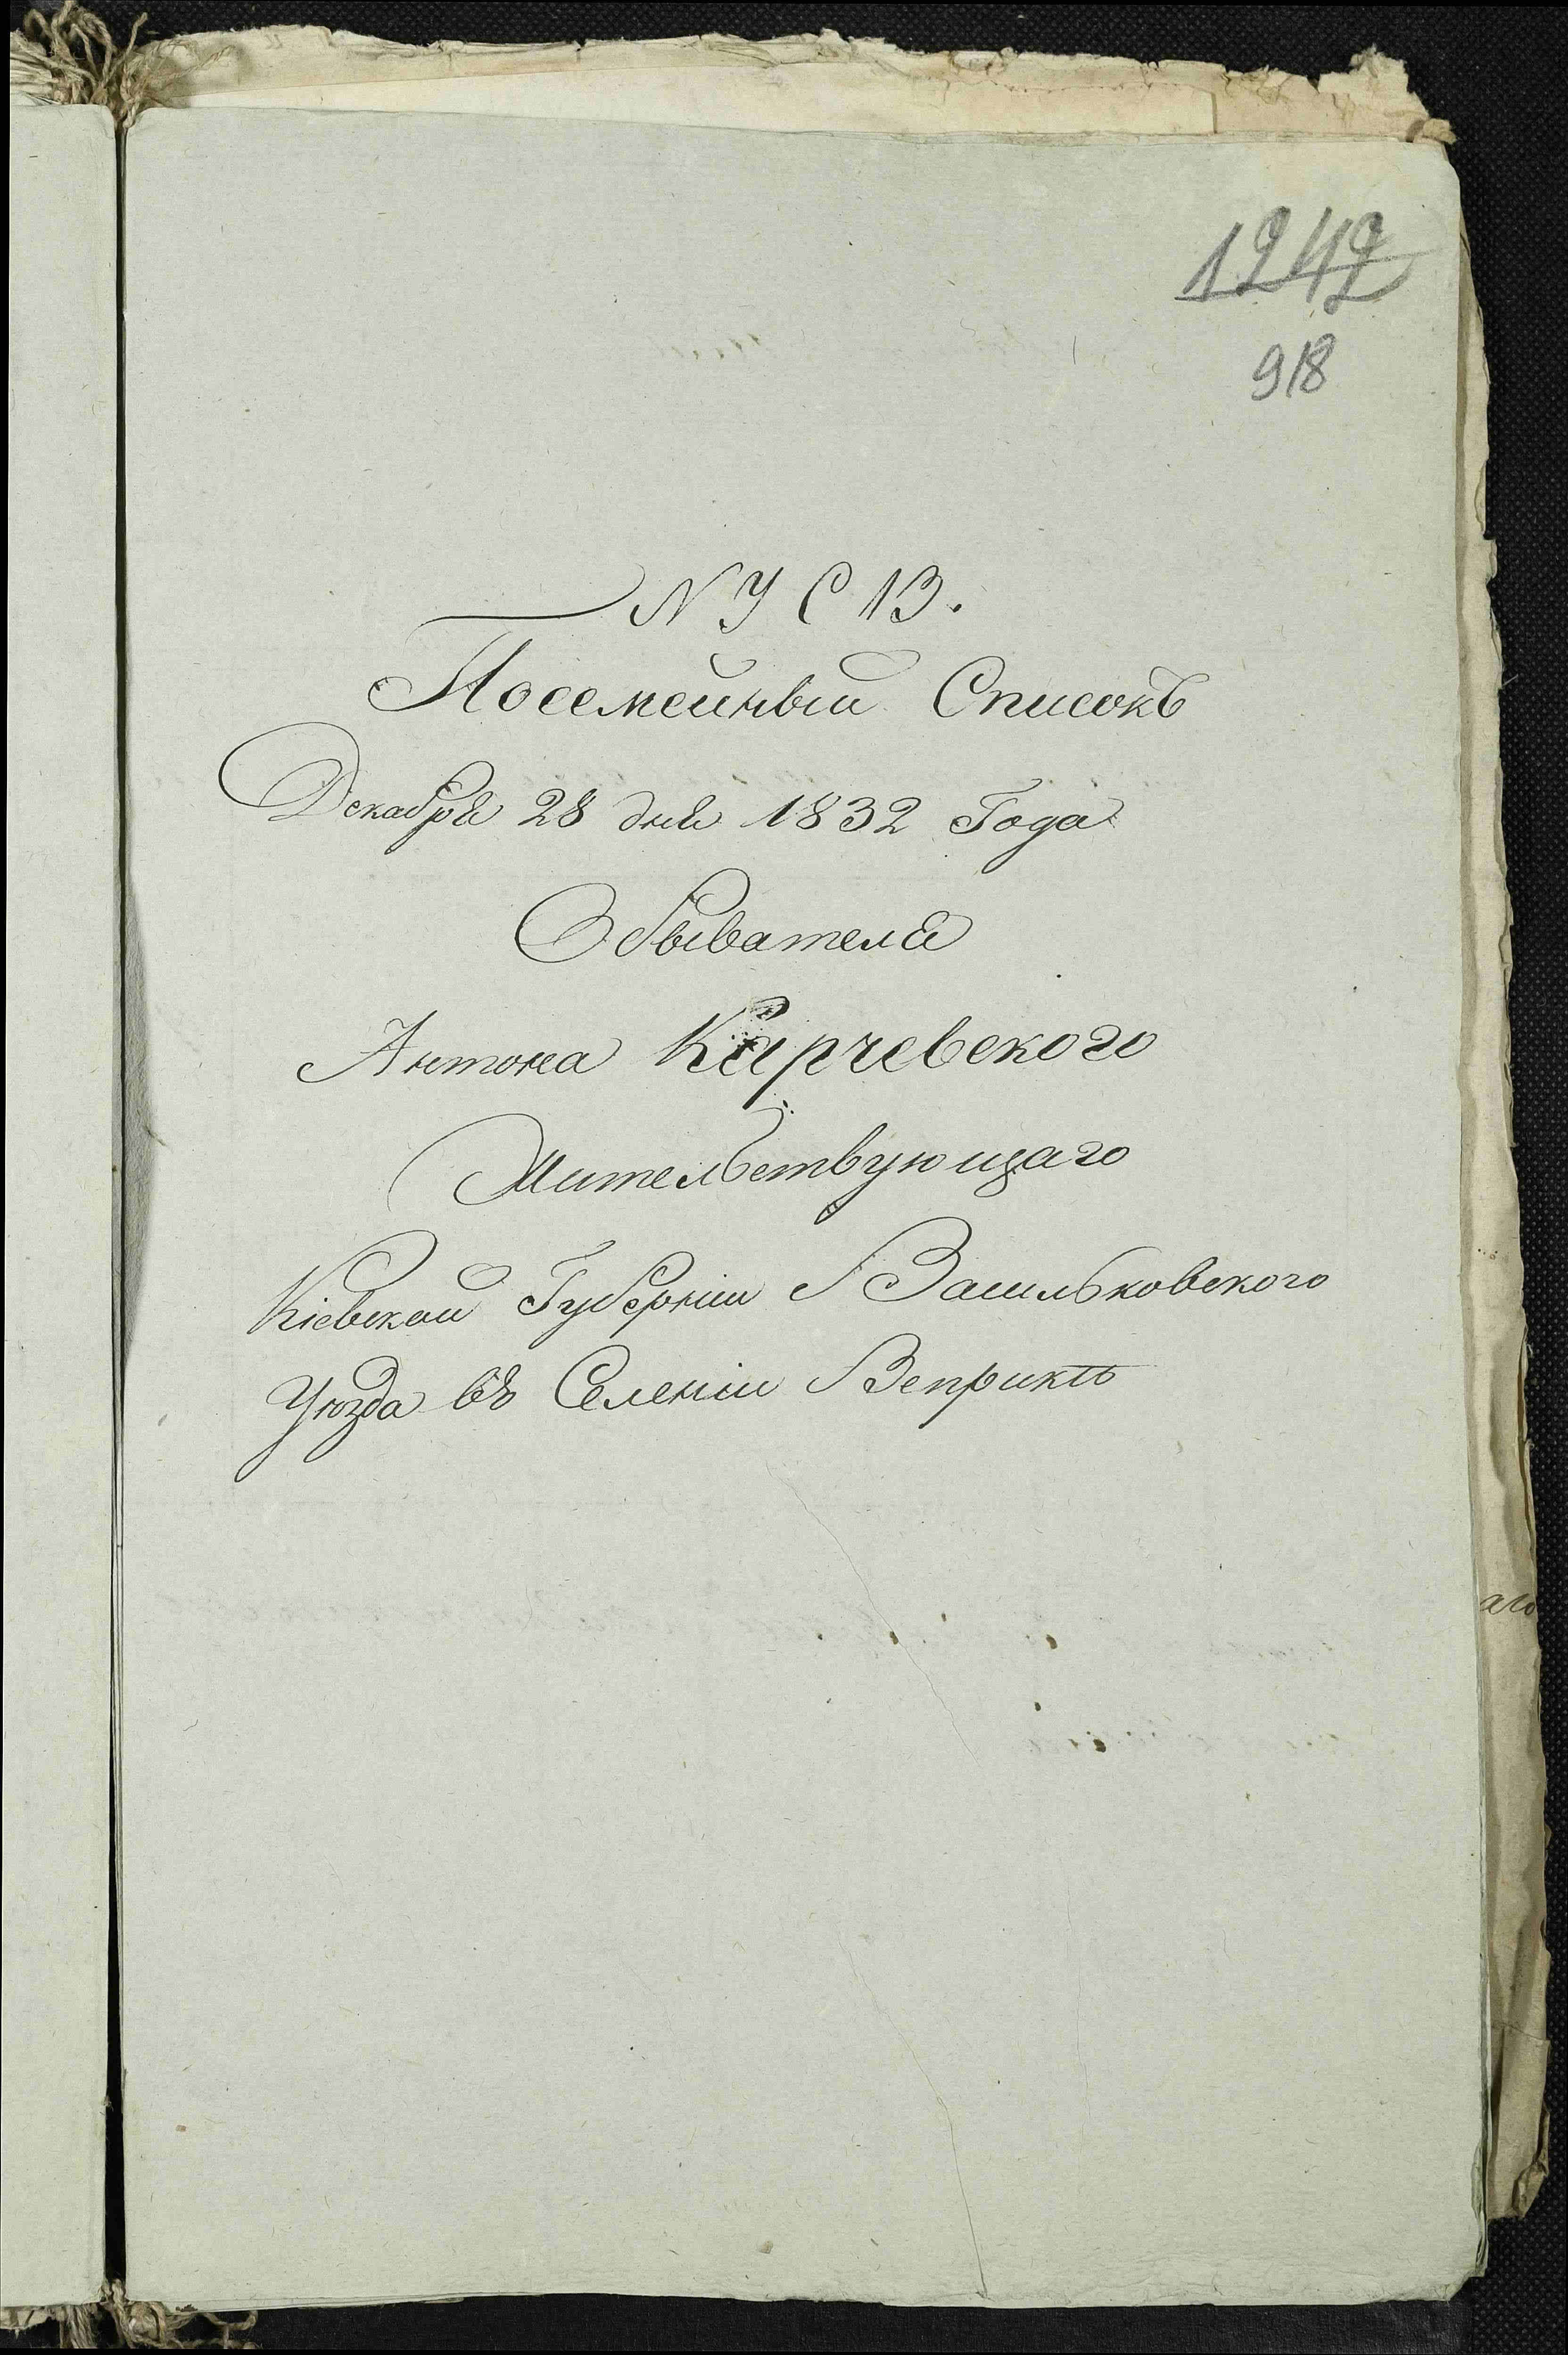 1242
918
N У С 13.
Посемейный Списокъ
Декабря 28 дня 1832 Года
Обывателя
Антона Карчевского
Жительствующаго
Кіевской Губерніи Васильковского
Уѣзда въ Селеніи Веприкѣ